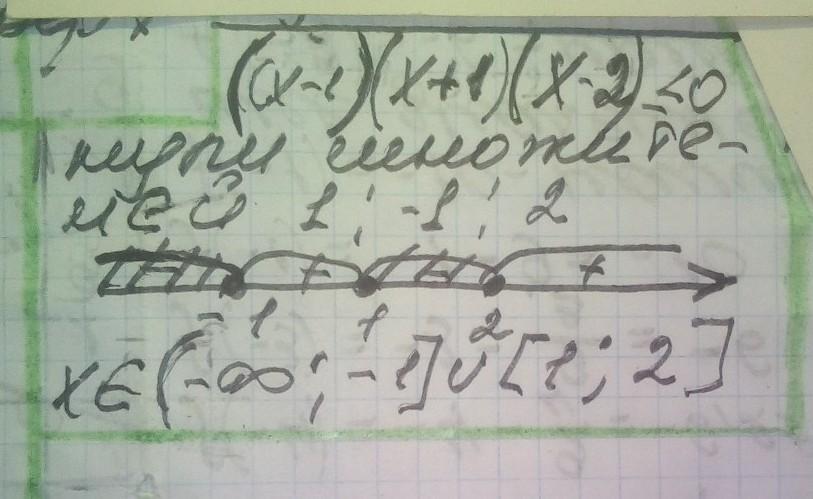 (x-1)(x+1)(x-2)≤0
нули множите-
лей 1; -1; 2
+ +
-1 1 2
x∈(-∞; -1]∪[1; 2]